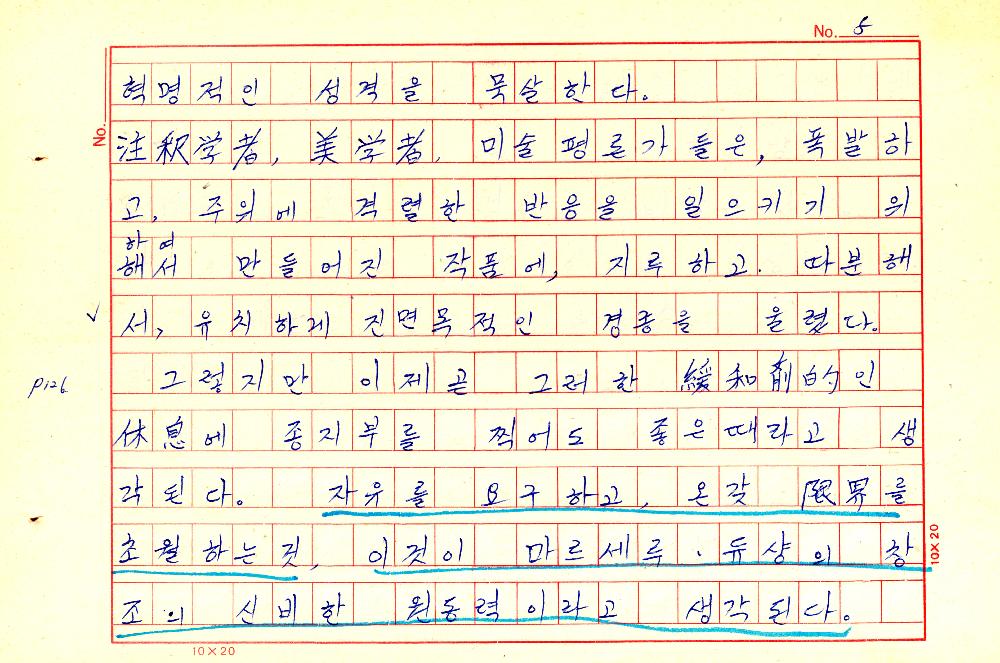 No. 5
혁명적인 성격을 묵살한다.
No.
注釈学者, 美学者, 미술평론가들은, 폭발하
고, 주위에 격렬한 반응을 일으키기 위
하여
해서 만들어진 작품에, 지루하고. 따분해
서, 유치하게 진면목적인 경종을 울렸다.
p126 그렇지만 이제곧 그러한 緩和剤的인
休息에 종지부를 찍어도 좋은때라고 생
각된다. 자유를 요구하고, 온갖 限界를
초월하는것, 이것이 마르세루·듀샹의 창
10×20
조의 신비한 원동력이라고 생각된다.
10×20